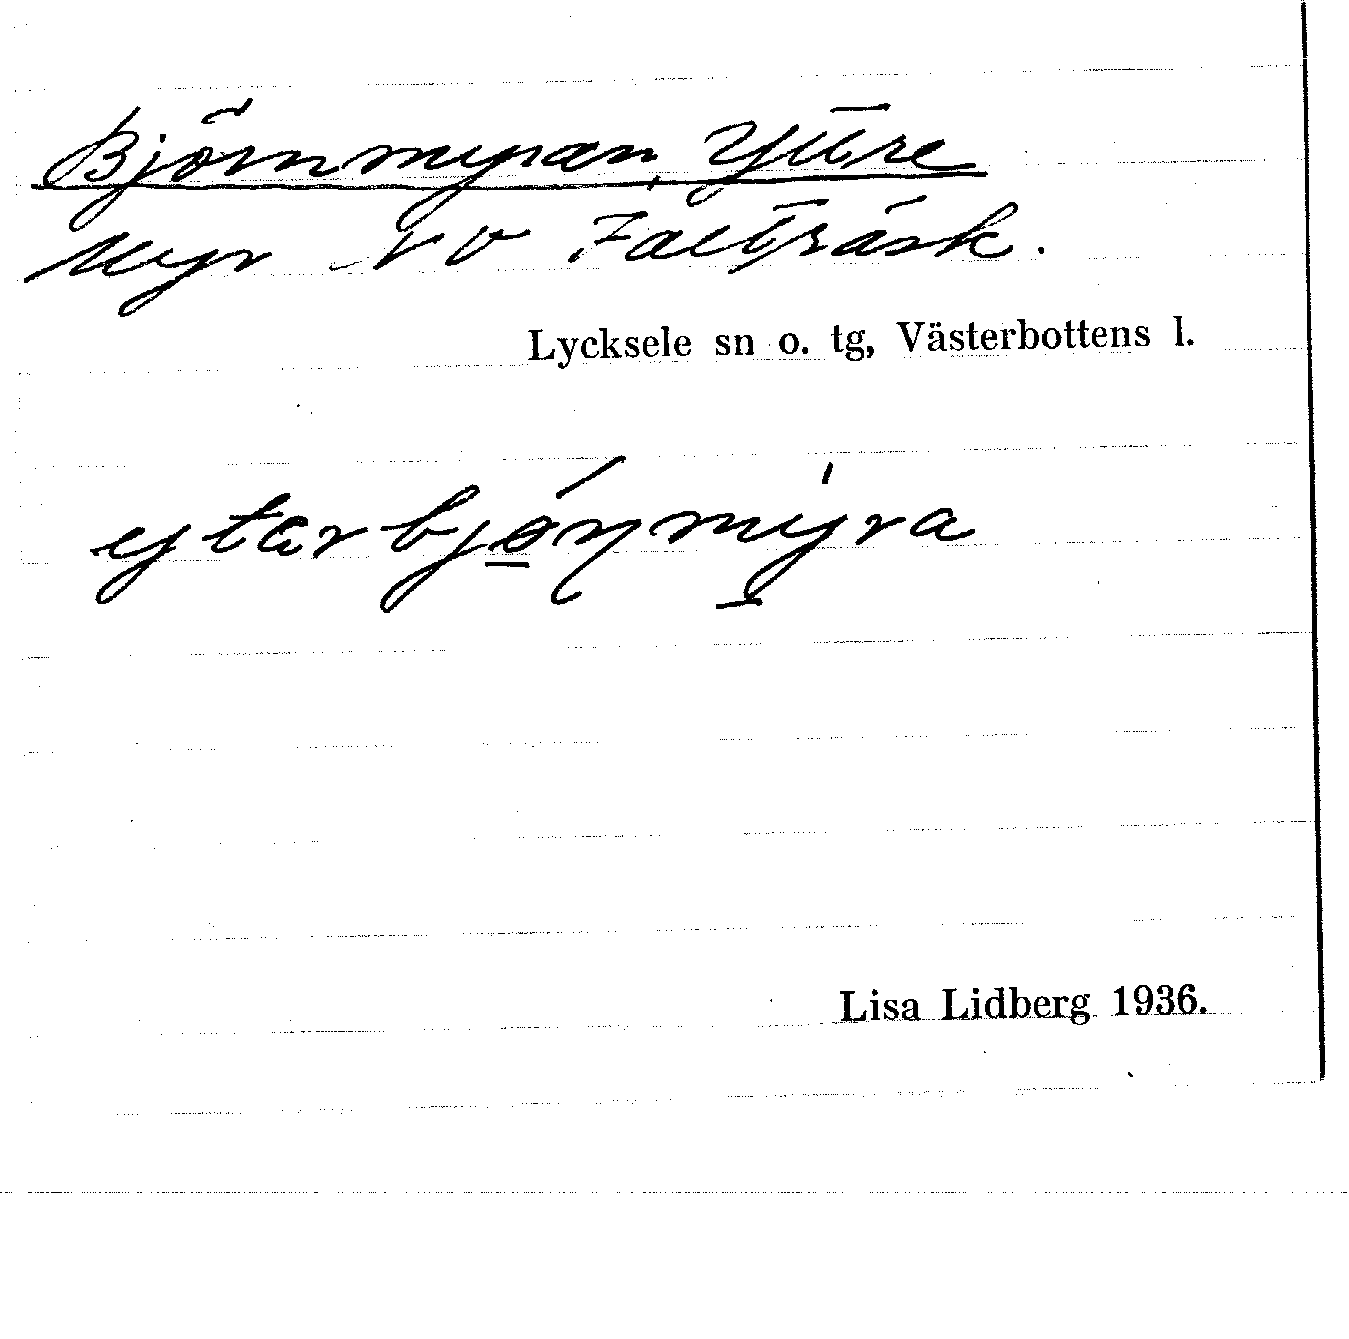 Björnmyran, Yttre
Myr NV Falträsk.
Lycksele sn o. tg, Västerbottens l.
Lisa Lidberg 1936.